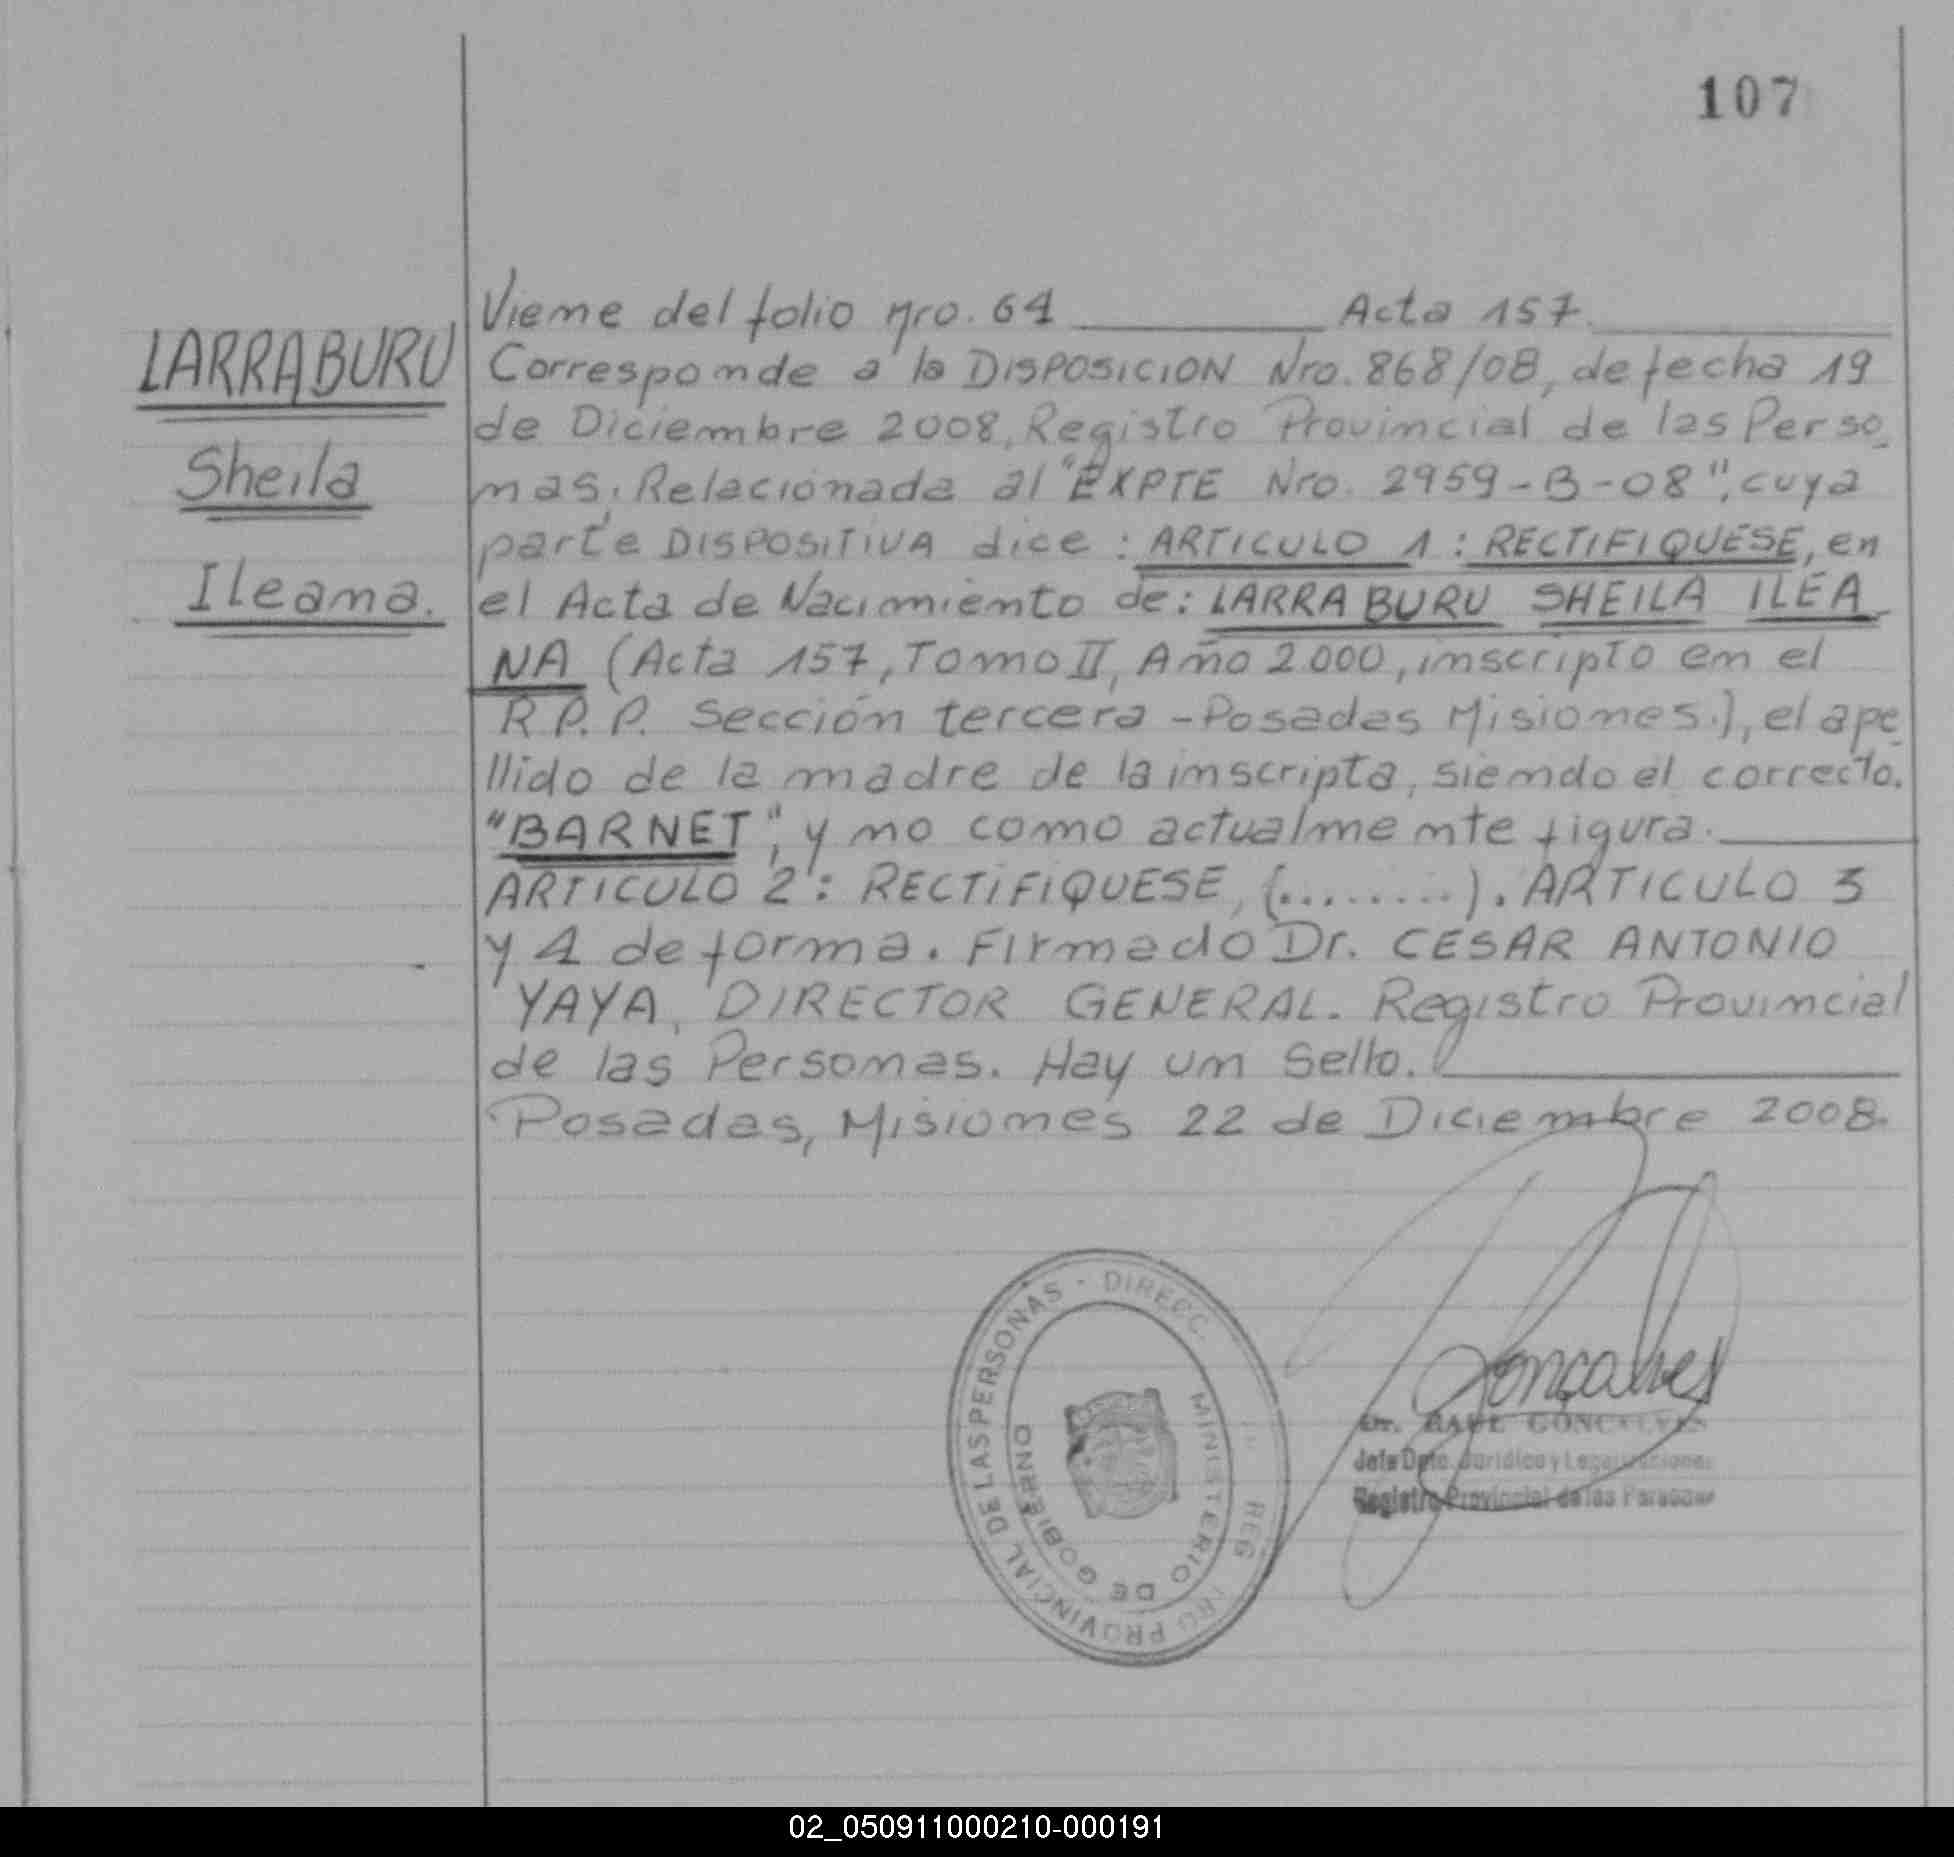 107
LARRABURU
Sheila
Ileana.
Viene del folio Nro. 64 Acta 157.
Corresponde a la DISPOSICION Nro. 868/08, de fecha 19
de Diciembre 2008, Registro Provincial de las Perso_
nas, Relacionada al "EXPTE Nro. 2959-B-08", cuya
parte DISPOSITIVA dice: ARTICULO 1: RECTIFIQUESE, en
el Acta de Nacimiento de: LARRABURU SHEILA ILEA_
NA (Acta 157, Tomo II, Año 2.000, inscripto en el
R.P.P. Sección tercera - Posadas Misiones.), el ape_
llido de la madre de la inscripta, siendo el correcto.
"BARNET", y no como actualmente figura.
ARTICULO 2: RECTIFIQUESE, (.........). ARTICULO 3
y 4 de forma. Firmado Dr. CESAR ANTONIO
YAYA, DIRECTOR GENERAL. Registro Provincial
de las Personas. Hay un Sello.
Posadas, Misiones 22 de Diciembre 2008.
PROVINCIAL DE LAS PERSONAS - DIRECC
MINISTERIO DE GOBIERNO
Goncalves
Dr. RAUL GONCALVES
Jefe Dpto. Jurídico y Legalizaciones
Registro Provincial de las Personas
02_050911000210-000191